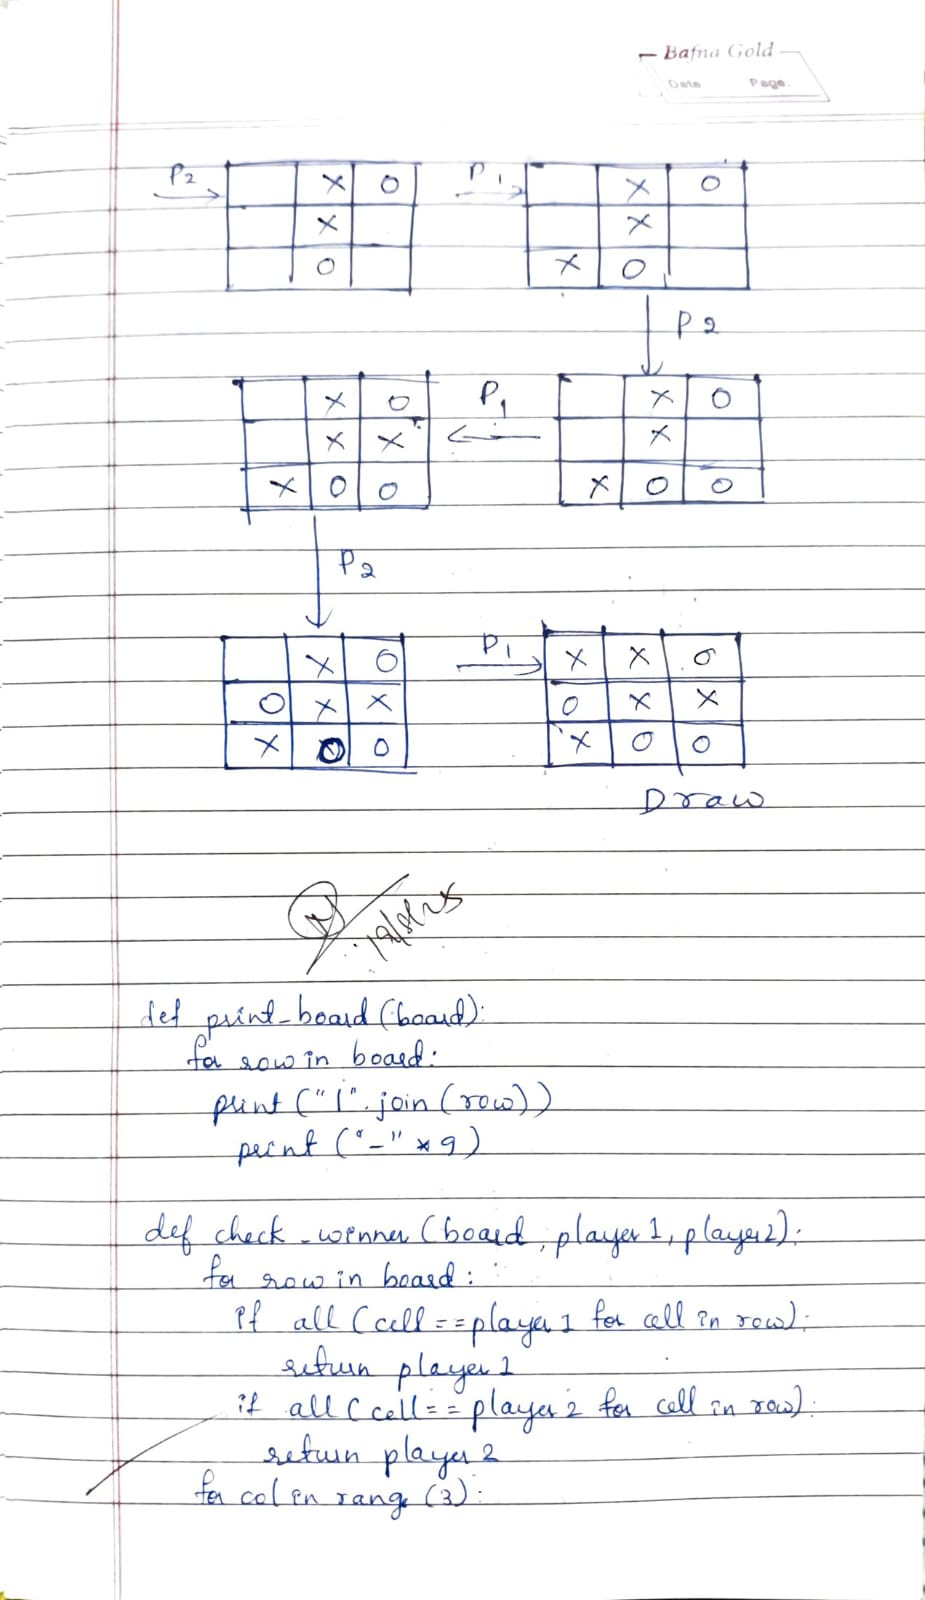 Bafna Gold
Date Page.
P2
X O
X
O
P1
X O
X
X O
P2
X O
X
X O O
P1
X O
X X
X O O
P2
X O
O X X
X O O
P1
X X O
O X X
X O O
Draw
def print_board(board):
for row in board:
print("|".join(row))
print("-"*9)
def check_winner(board, player1, player2):
for row in board:
if all(cell==player1 for cell in row):
return player1
if all(cell==player2 for cell in row):
return player2
for col in range(3):